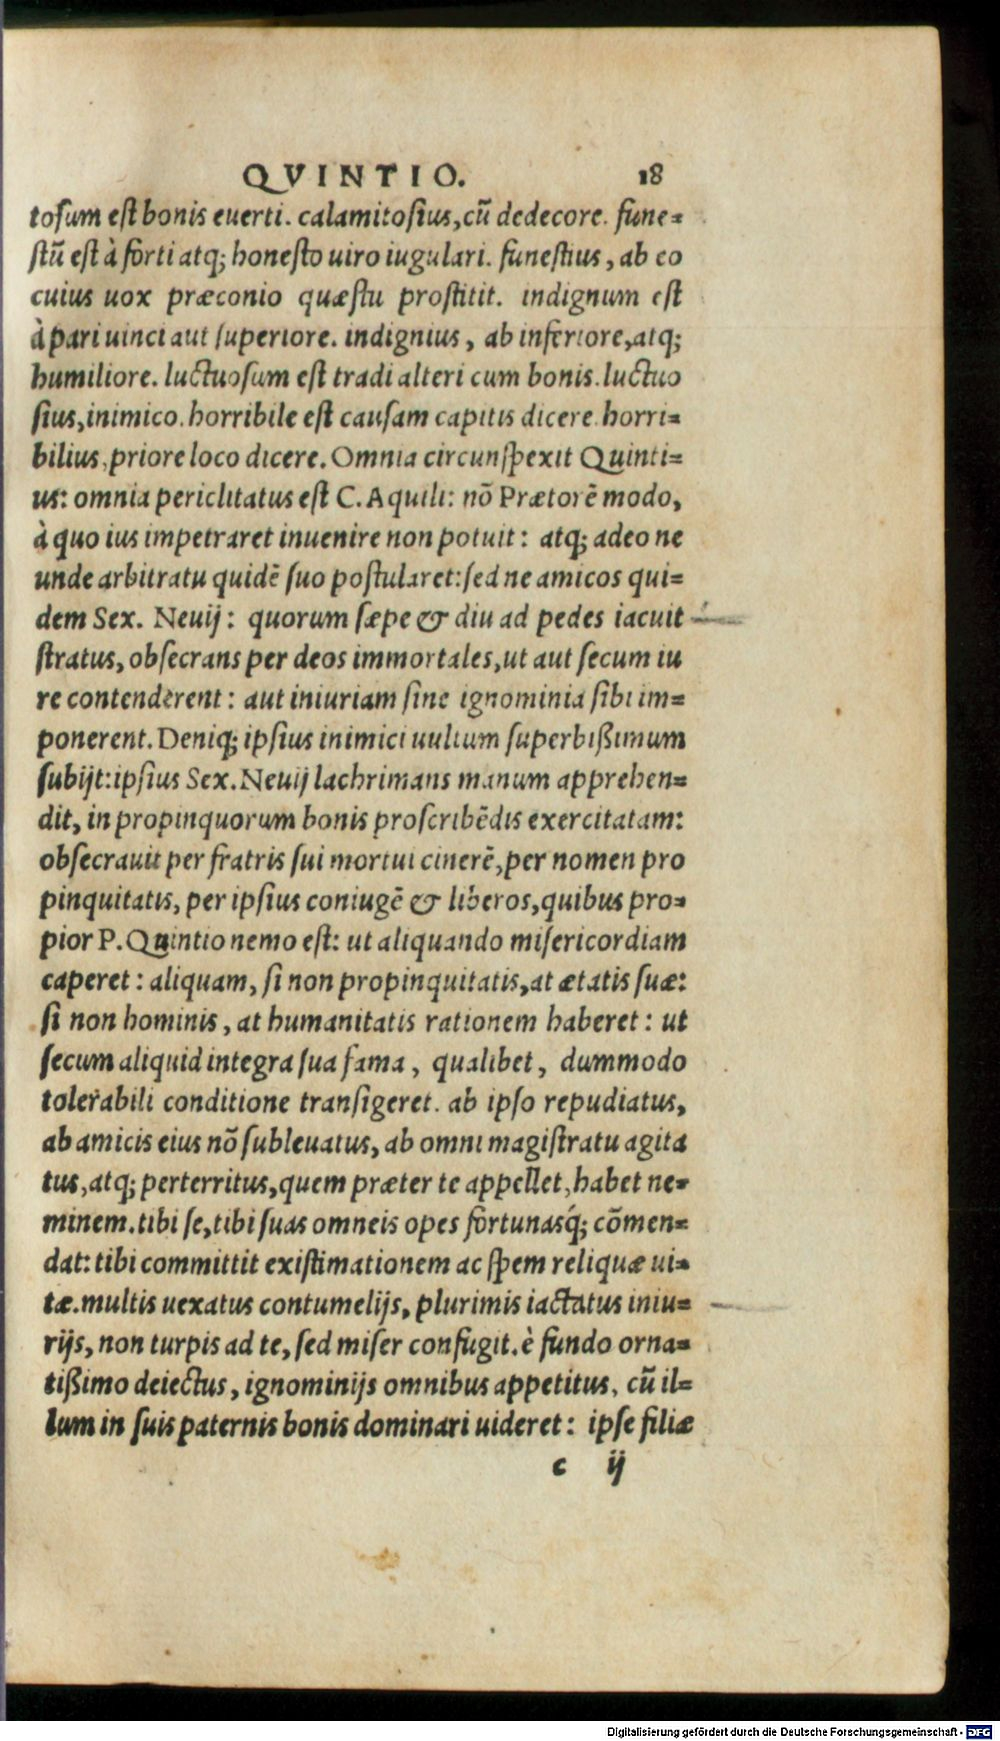 QVINTIO. 18
tosum est bonis euerti. calamitosius, cū dedecore. fune=
stū est à forti atq; honesto uiro iugulari. funestius, ab eo
cuius uox præconio quæstu prostitit. indignum est
à pari uinci aut superiore. indignius, ab inferiore, atq;
humiliore. luctuosum est tradi alteri cum bonis. luctuo
sius, inimico. horribile est causam capitis dicere. horri=
bilius, priore loco dicere. Omnia circunspexit Quinti=
us: omnia periclitatus est C. Aquili: nō Prætorē modo,
à quo ius impetraret inuenire non potuit: atq; adeo ne
unde arbitratu quidē suo postularet: sed ne amicos qui=
dem Sex. Neuij: quorum sæpe & diu ad pedes iacuit
stratus, obsecrans per deos immortales, ut aut secum iu
re contenderent: aut iniuriam sine ignominia sibi im=
ponerent. Deniq; ipsius inimici uultum superbißimum
subijt: ipsius Sex. Neuij lachrimans manum apprehen=
dit, in propinquorum bonis proscribēdis exercitatam:
obsecrauit per fratris sui mortui cinerē, per nomen pro
pinquitatis, per ipsius coniugē & liberos, quibus pro=
pior P. Quintio nemo est: ut aliquando misericordiam
caperet: aliquam, si non propinquitatis, at ætatis suæ:
si non hominis, at humanitatis rationem haberet: ut
secum aliquid integra sua fama, qualibet, dummodo
tolerabili conditione transigeret. ab ipso repudiatus,
ab amicis eius nō subleuatus, ab omni magistratu agita
tus, atq; perterritus, quem præter te appellet, habet ne=
minem. tibi se, tibi suas omneis opes fortunasq́; cōmen=
dat: tibi committit existimationem ac spem reliquæ ui=
tæ. multis uexatus contumelijs, plurimis iactatus iniu=
rijs, non turpis ad te, sed miser confugit. è fundo orna=
tißimo deiectus, ignominijs omnibus appetitus, cū il=
lum in suis paternis bonis dominari uideret: ipse filiæ
c ij
Digitalisierung gefördert durch die Deutsche Forschungsgemeinschaft - DFG